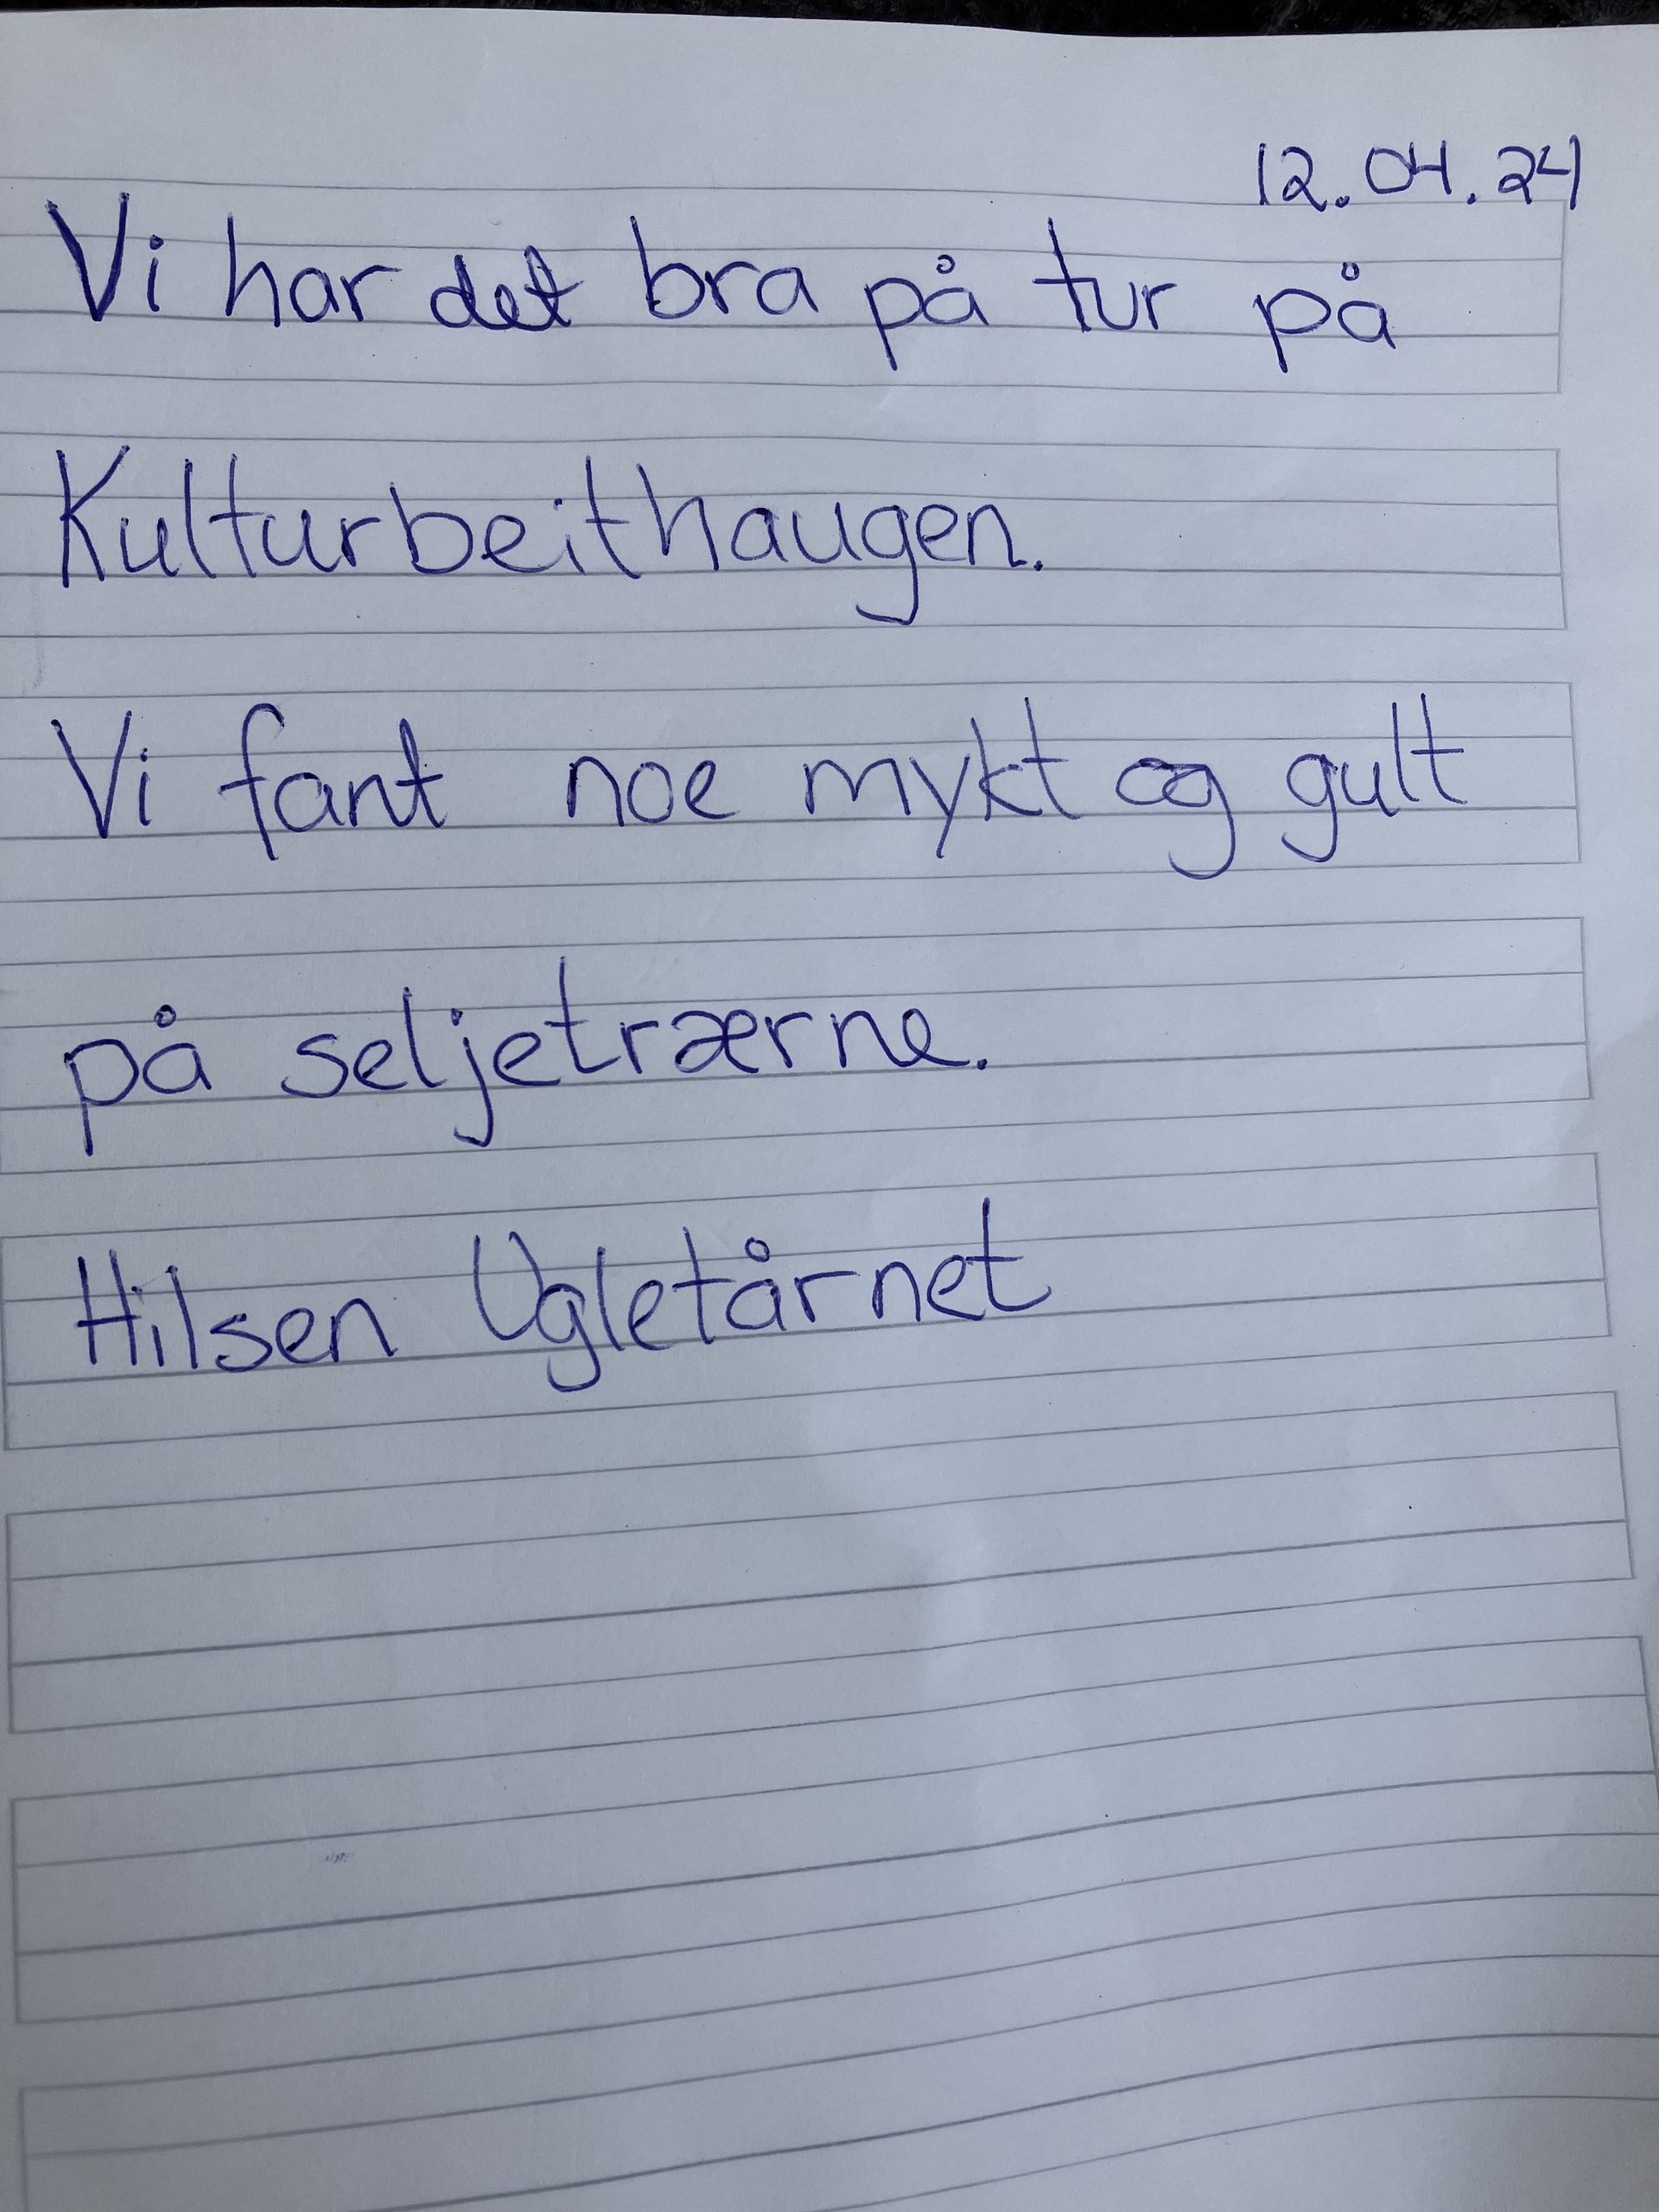 12.04.24
Vi har det bra på tur på
Kulturbeithaugen.
Vi fant noe mykt og gult
på seljetrærne.
Hilsen Ugletårnet